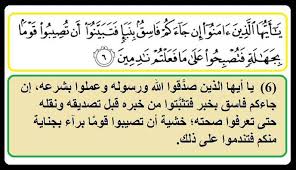 يَٰٓأَيُّهَا ٱلَّذِينَ ءَامَنُوٓا۟ إِن جَآءَكُمْ فَاسِقٌۢ بِنَبَإٍ فَتَبَيَّنُوٓا۟ أَن تُصِيبُوا۟ قَوْمًۢا
بِجَهَٰلَةٍ فَتُصْبِحُوا۟ عَلَىٰ مَا فَعَلْتُمْ نَٰدِمِينَ ٦
(6) يا أيها الذين صدَّقوا الله ورسوله وعملوا بشرعه، إن
جاءكم فاسق بخبر فتثبَّتوا من خبره قبل تصديقه ونقله
حتى تعرفوا صحته؛ خشية أن تصيبوا قومًا برآء بجناية
منكم فتندموا على ذلك.